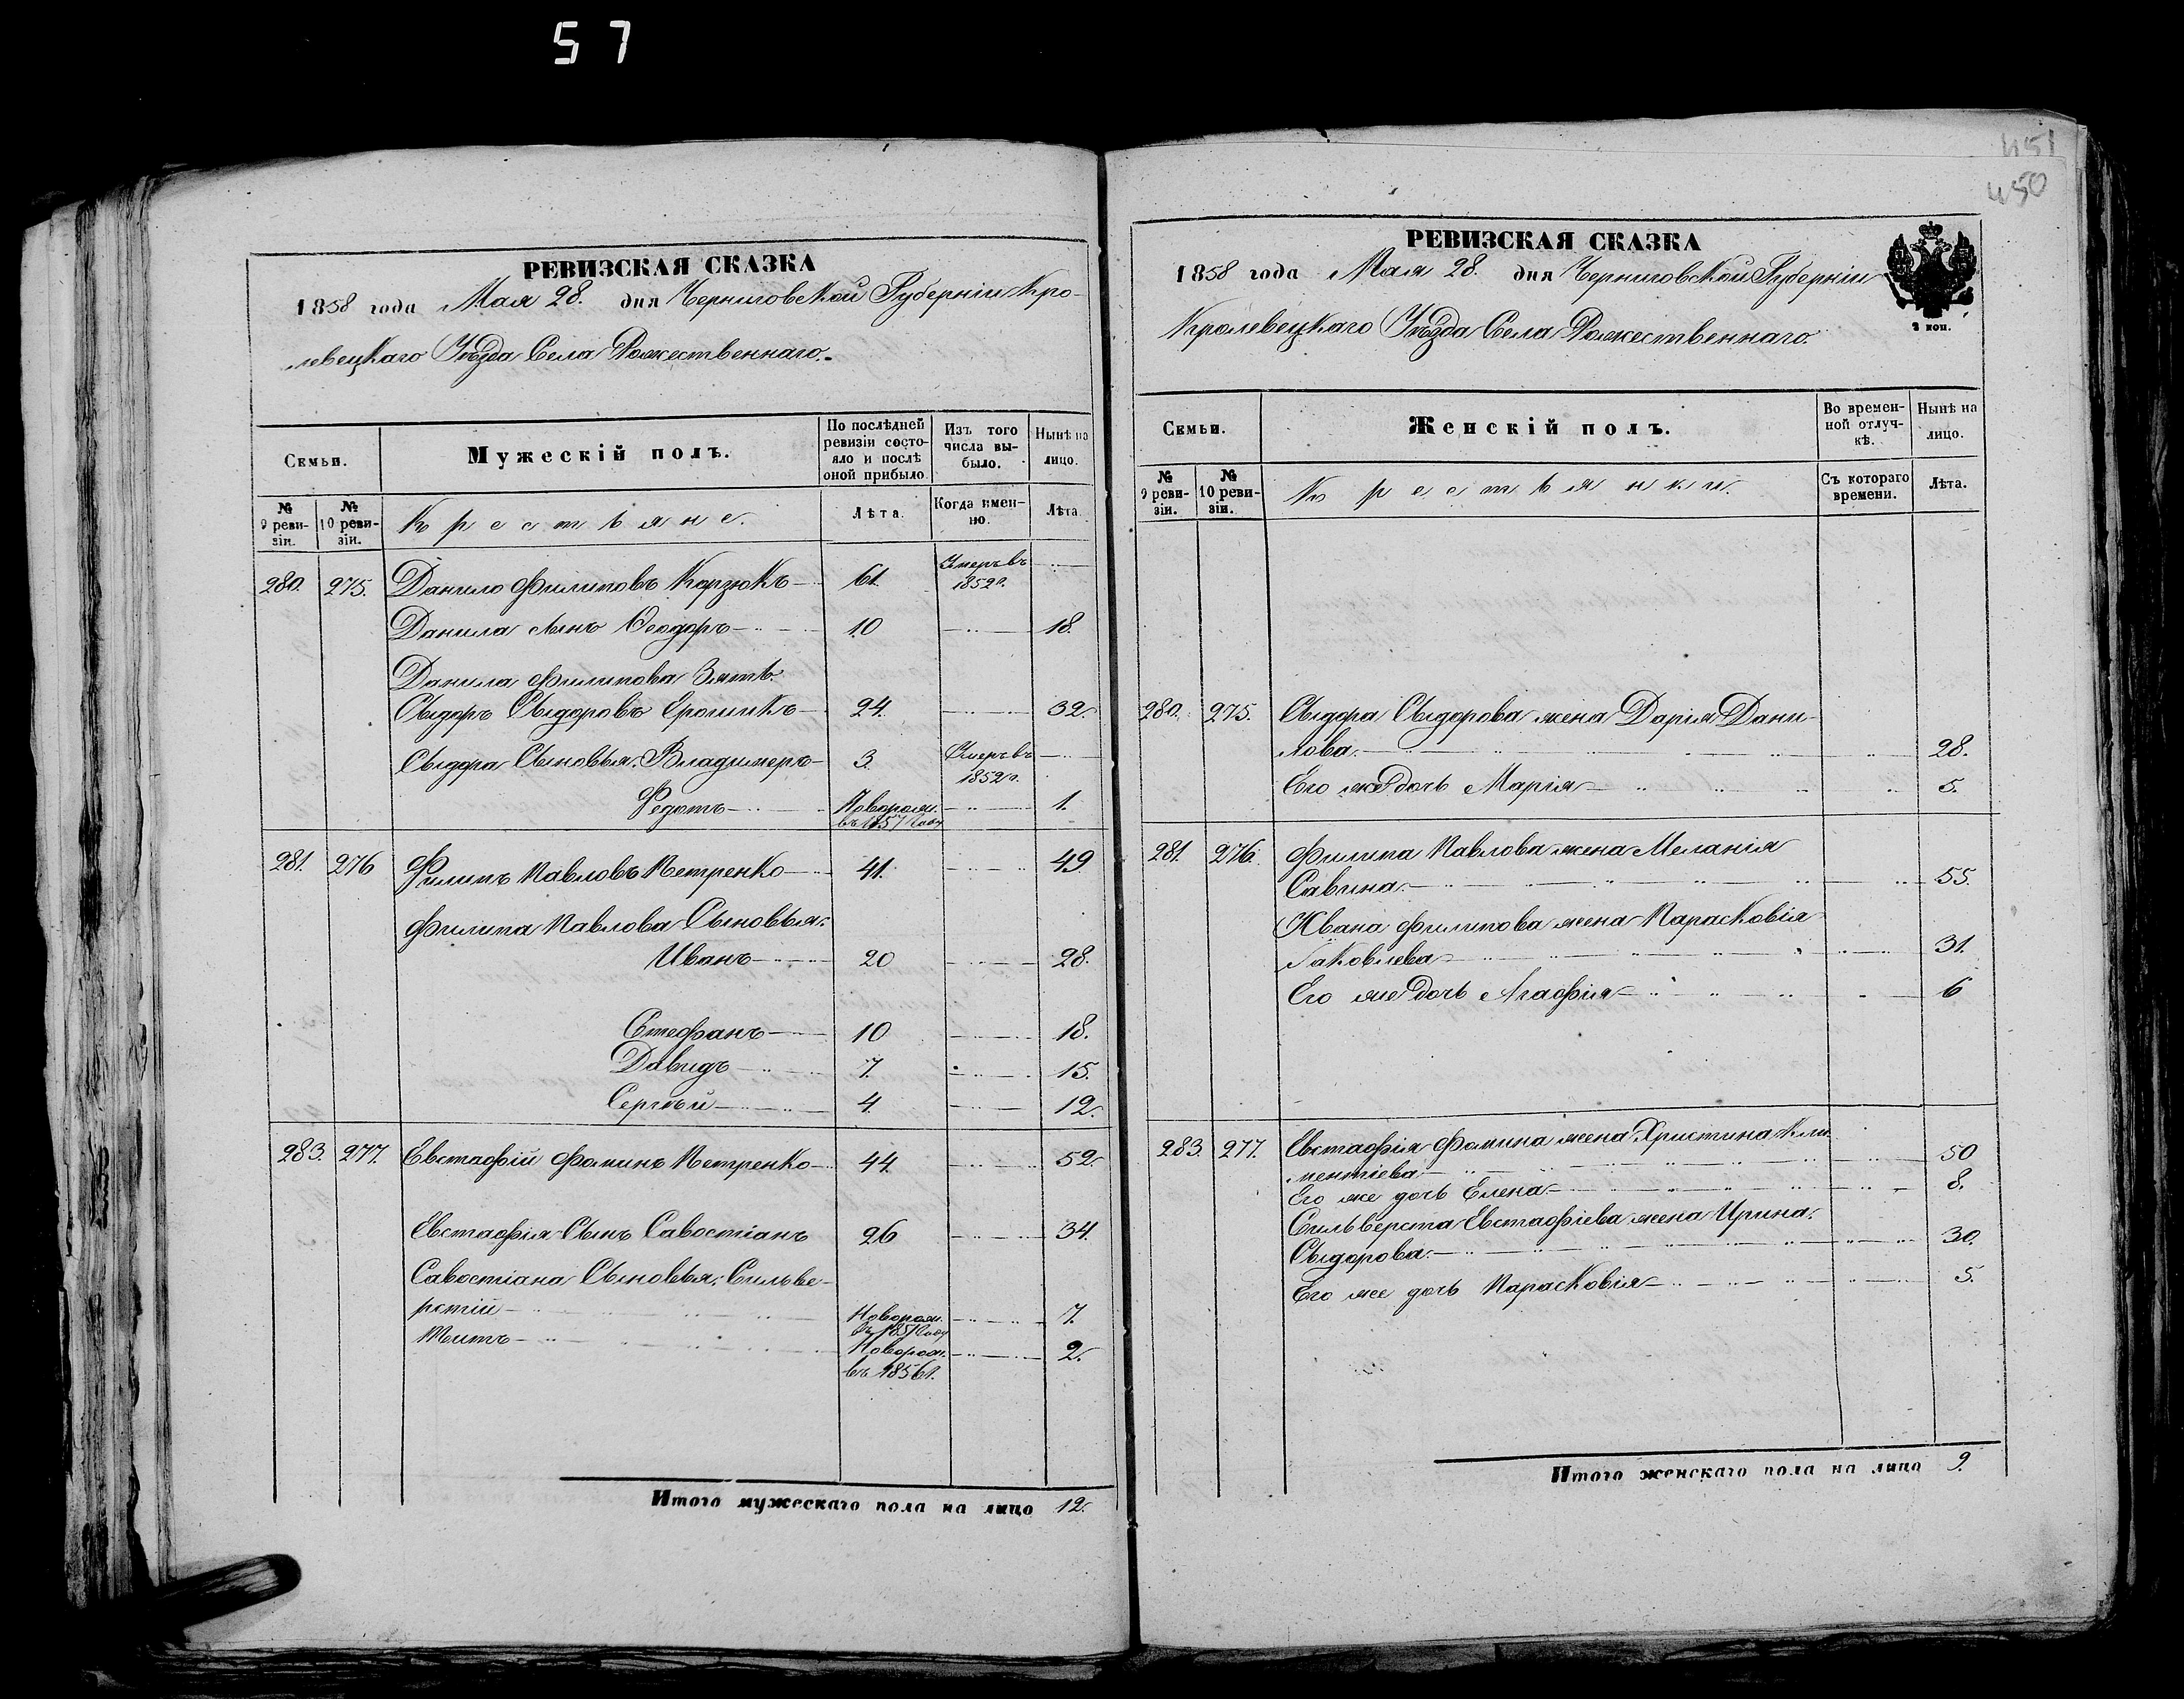 57
РЕВИЗСКАЯ СКАЗКА
1858 года Мая 28. дня Черниговской Губерніи Кро-
левецкаго Уѣзда Села Рожественнаго.
Семьи.
Мужескій полъ.
По послѣдней ревизіи состояло и послѣ оной прибыло.
Изъ того числа выбыло.
Нынѣ на лицо.
№ 9 ревизіи.
№ 10 ревизіи.
Крестьяне.
Лѣта.
Когда именно.
Лѣта.
280. 275. Данило Филиповъ Корзюкъ 61. Умеръ въ 1852 г.
Данила сынъ Ѳеодоръ 10 18.
Данила Филипова Зять.
Сыдоръ Сыдоровъ 24. 32.
Сыдора Сыновья: Владимеръ 3. Умеръ въ 1852 г.
Федотъ Поворож. въ 1857 году 1.
281. 276 Филипъ Павловъ Петренко 41. 49.
Филипа Павлова Сыновья:
Иванъ 20 28.
Стефанъ 10 18.
Давидъ 7. 15.
Сергѣй 4. 12.
283. 277. Евстафій Фоминъ Петренко 44. 52.
Евстафія Сынъ Савостіанъ 26 34.
Савостіана Сыновья: Сильве-
рстій Новорож. въ 1851 году 7.
Титъ Новорож. въ 1856 г. 2.
Итого мужескаго пола на лицо 12.
451
450
РЕВИЗСКАЯ СКАЗКА
1858 года Мая 28. дня Черниговской Губерніи
Кролевецкаго Уѣзда Села Рожественнаго.
2 коп.
Семьи.
Женскій полъ.
Во временной отлучкѣ.
Нынѣ на лицо.
№ 9 ревизіи.
№ 10 ревизіи.
Крестьянки.
Съ котораго времени.
Лѣта.
280. 275. Сыдора Сыдорова жена Дарія Дани-
лова 28.
Его же дочь Марія 5.
281. 276. Филипа Павлова жена Меланія
Савина 55.
Ивана Филипова жена Парасковія
Іаковлева 31.
Его же дочь Агафія 6
283. 277. Евстафія Фомина жена Христина Кли-
ментіева 50
Его же дочь Елена 8.
Сильверста Евстафіева жена Ирина
Сыдорова 30.
Его же дочь Парасковія 5.
Итого женскаго пола на лицо 9.